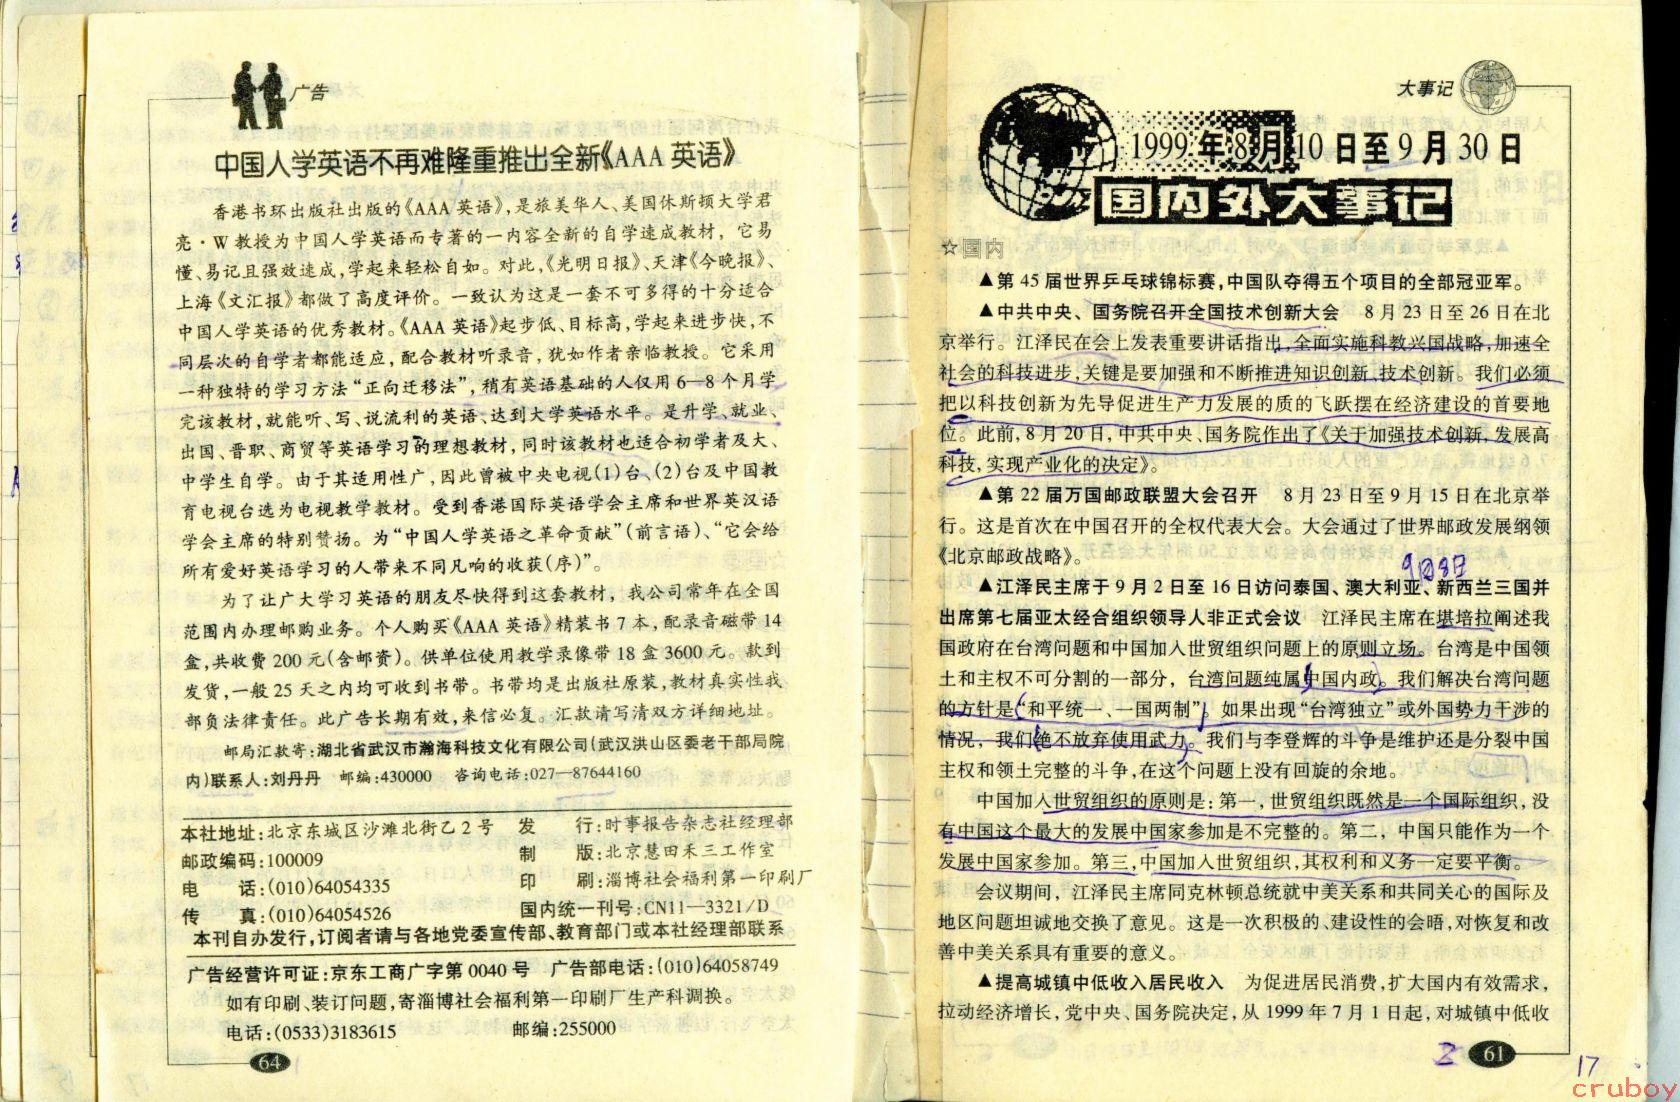 广告
中国人学英语不再难隆重推出全新《AAA 英语》
香港书环出版社出版的《AAA 英语》,是旅美华人、美国休斯顿大学君
亮·W教授为中国人学英语而专著的一内容全新的自学速成教材，它易
懂、易记且强效速成,学起来轻松自如。对此,《光明日报》、天津《今晚报》、
上海《文汇报》都做了高度评价。一致认为这是一套不可多得的十分适合
中国人学英语的优秀教材。《AAA 英语》起步低、目标高,学起来进步快,不
同层次的自学者都能适应，配合教材听录音，犹如作者亲临教授。它采用
一种独特的学习方法“正向迁移法”，稍有英语基础的人仅用6—8个月学
完该教材,就能听、写、说流利的英语、达到大学英语水平。是升学、就业、
出国、晋职、商贸等英语学习的理想教材，同时该教材也适合初学者及大、
中学生自学。由于其适用性广，因此曾被中央电视(1)台、(2)台及中国教
育电视台选为电视教学教材。受到香港国际英语学会主席和世界英汉语
学会主席的特别赞扬。为“中国人学英语之革命贡献”(前言语)、“它会给
所有爱好英语学习的人带来不同凡响的收获(序)”。
为了让广大学习英语的朋友尽快得到这套教材，我公司常年在全国
范围内办理邮购业务。个人购买《AAA 英语》精装书7本，配录音磁带14
盒,共收费200元(含邮资)。供单位使用教学录像带18盒3600元。款到
发货，一般25天之内均可收到书带。书带均是出版社原装,教材真实性我
部负法律责任。此广告长期有效,来信必复。汇款请写清双方详细地址。
邮局汇款寄:湖北省武汉市瀚海科技文化有限公司(武汉洪山区委老干部局院
内)联系人:刘丹丹 邮编:430000 咨询电话:027—87644160
本社地址:北京东城区沙滩北街乙2号 发 行:时事报告杂志社经理部
邮政编码:100009 制 版:北京慧田禾三工作室
电 话:(010)64054335 印 刷:淄博社会福利第一印刷厂
传 真:(010)64054526 国内统一刊号:CN11—3321/D
本刊自办发行,订阅者请与各地党委宣传部、教育部门或本社经理部联系
广告经营许可证:京东工商广字第0040号 广告部电话:(010)64058749
如有印刷、装订问题,寄淄博社会福利第一印刷厂生产科调换。
电话:(0533)3183615 邮编:255000
64
大事记
1999年8月10日至9月30日
国内外大事记
☆国内
▲第45届世界乒乓球锦标赛,中国队夺得五个项目的全部冠亚军。
▲中共中央、国务院召开全国技术创新大会 8月23日至26日在北
京举行。江泽民在会上发表重要讲话指出,全面实施科教兴国战略,加速全
社会的科技进步,关键是要加强和不断推进知识创新、技术创新。我们必须
把以科技创新为先导促进生产力发展的质的飞跃摆在经济建设的首要地
位。此前,8月20日,中共中央、国务院作出了《关于加强技术创新,发展高
科技,实现产业化的决定》。
▲第22届万国邮政联盟大会召开 8月23日至9月15日在北京举
行。这是首次在中国召开的全权代表大会。大会通过了世界邮政发展纲领
《北京邮政战略》。
9月8日
▲江泽民主席于9月2日至16日访问泰国、澳大利亚、新西兰三国并
出席第七届亚太经合组织领导人非正式会议 江泽民主席在堪培拉阐述我
国政府在台湾问题和中国加入世贸组织问题上的原则立场。台湾是中国领
土和主权不可分割的一部分，台湾问题纯属中国内政。我们解决台湾问题
的方针是“和平统一、一国两制”。如果出现“台湾独立”或外国势力干涉的
情况，我们绝不放弃使用武力。我们与李登辉的斗争是维护还是分裂中国
主权和领土完整的斗争,在这个问题上没有回旋的余地。
中国加入世贸组织的原则是:第一,世贸组织既然是一个国际组织,没
有中国这个最大的发展中国家参加是不完整的。第二，中国只能作为一个
发展中国家参加。第三,中国加入世贸组织,其权利和义务一定要平衡。
会议期间，江泽民主席同克林顿总统就中美关系和共同关心的国际及
地区问题坦诚地交换了意见。这是一次积极的、建设性的会晤,对恢复和改
善中美关系具有重要的意义。
▲提高城镇中低收入居民收入 为促进居民消费,扩大国内有效需求,
拉动经济增长,党中央、国务院决定,从1999年7月1日起,对城镇中低收
61
17
cruboy